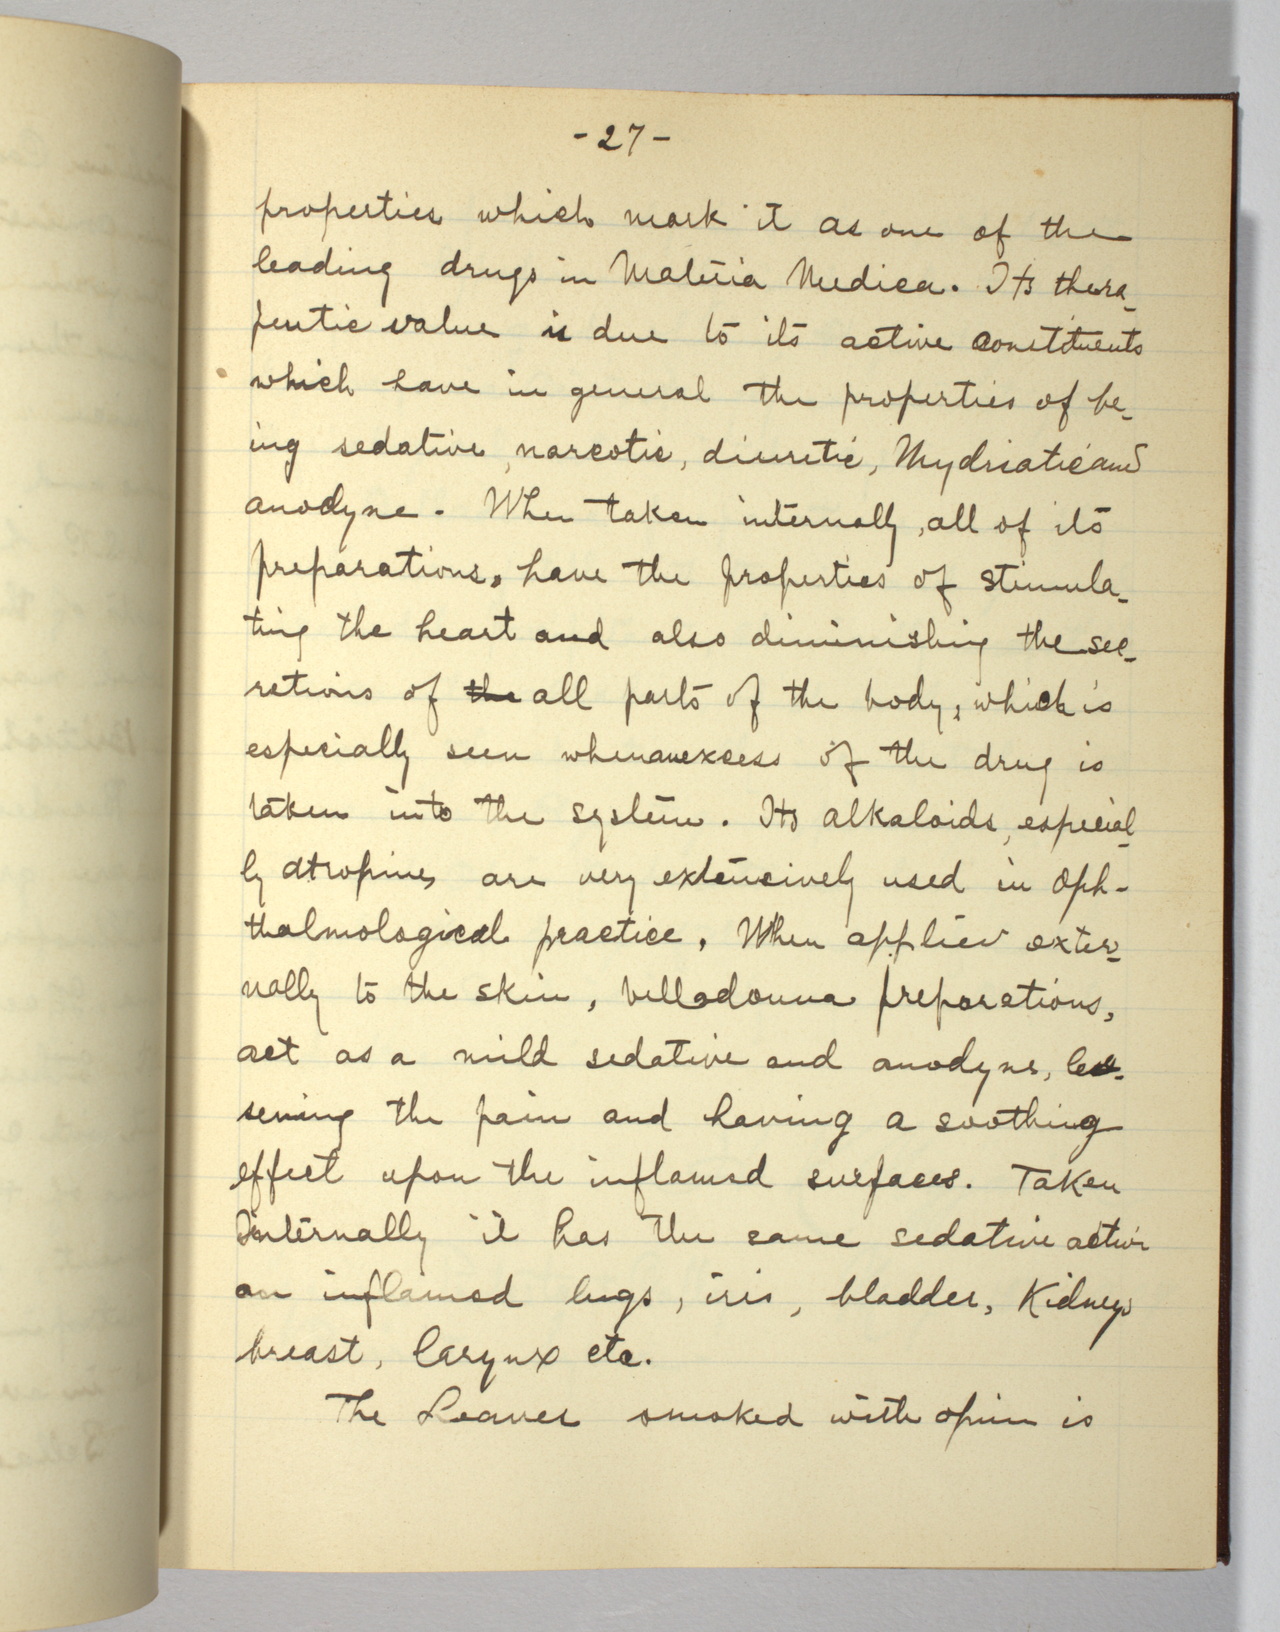 -27-
properties which mark it as one of the
leading drugs in Materia Medica. Its thera-
peutic value is due to its active constituents
which have in general the properties of be-
ing sedative, narcotic, diuretic, Mydriatic and
anodyne. When taken internally, all of its
preparations, have the properties of stimula-
ting the heart and also diminishing the sec-
retions of the all parts of the body, which is
especially seen when an excess of the drug is
taken into the system. Its alkaloids, especial-
ly atropine, are very extensively used in oph-
thalmological practice. When applied exter-
nally to the skin, belladonna preparations,
act as a mild sedative and anodyne, les-
sening the pain and having a soothing
effect upon the inflamed surfaces. Taken
internally it has the same sedative action
on inflamed lugs, iris, bladder, Kidneys
breast, larynx etc.
The Leaves smoked with opium is